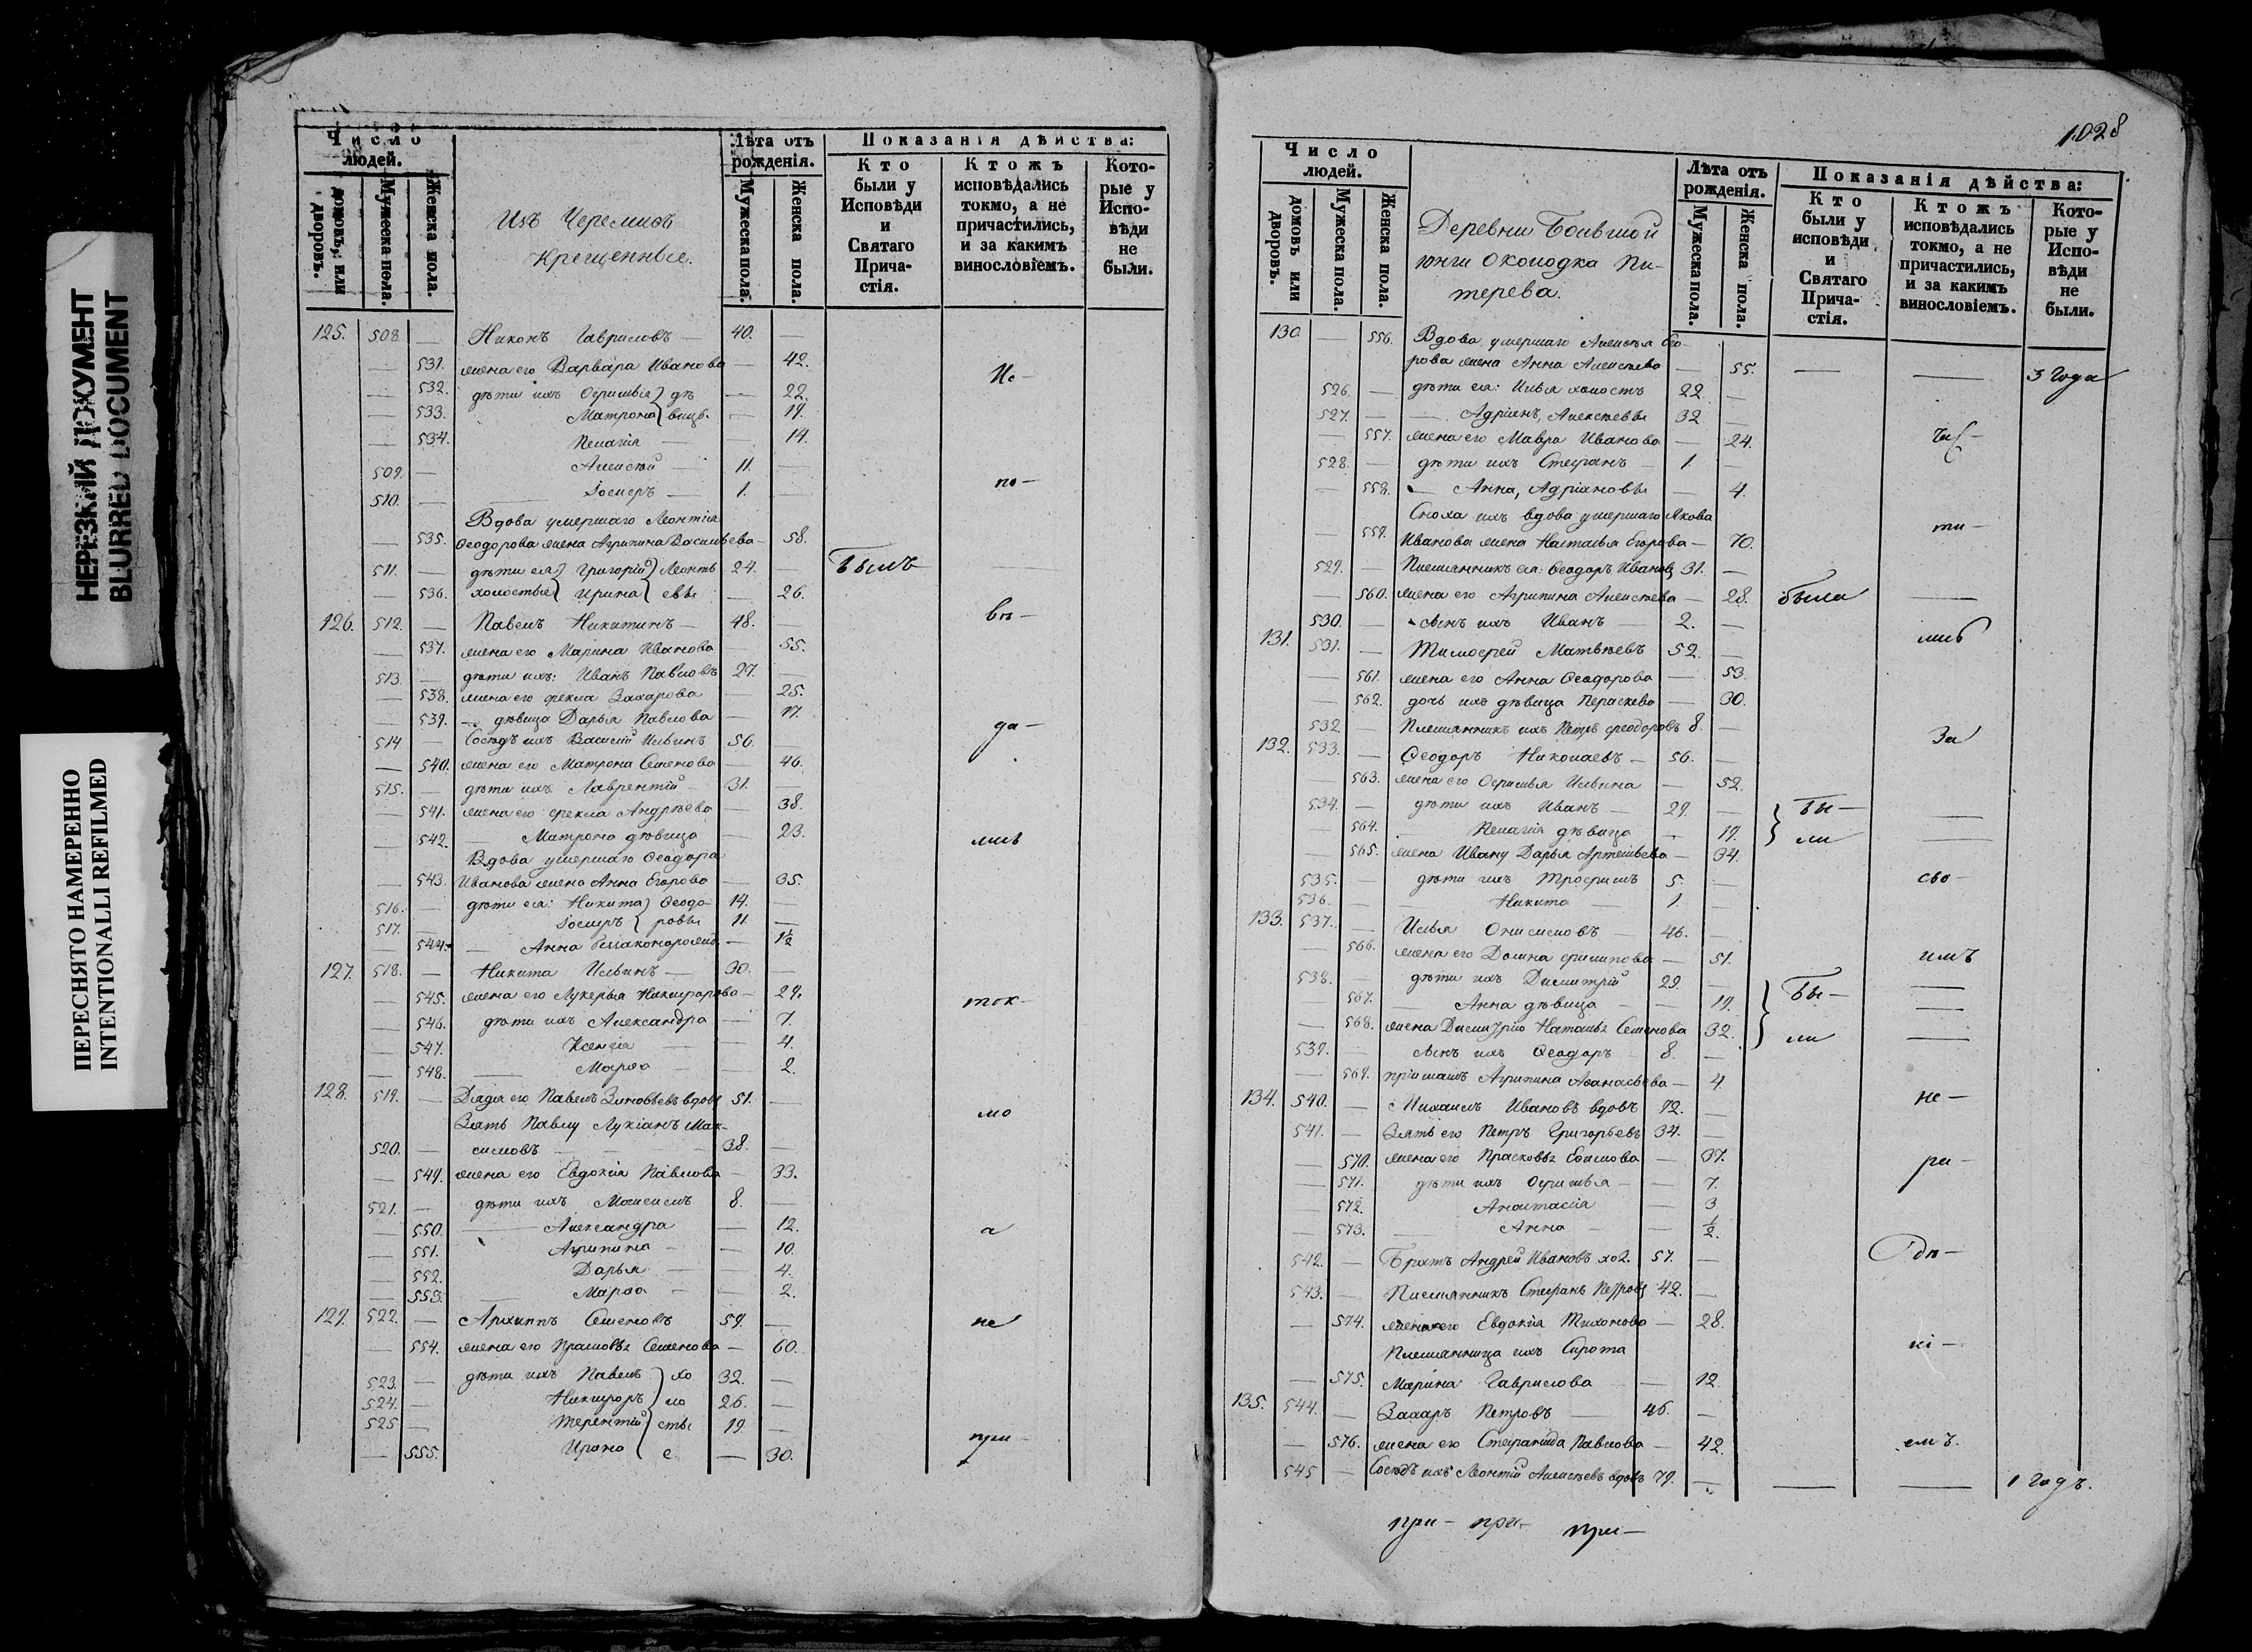 НЕРЕЗКИЙ ДОКУМЕНТ
BLURRED DOCUMENT
ПЕРЕСНЯТО НАМЕРЕННО
INTENTIONALLI REFILMED
Число людей.
домовъ, или дворовъ.
Мужеска пола.
Женска пола.
Изъ Черемисъ
крещенные.
Лѣта отъ рожденія.
Мужеска пола.
Женска пола.
Показанія дѣйства:
Кто были у Исповѣди и Святаго Причастія.
Ктожъ исповѣдались токмо, а не причастились, и за какимъ винословіемъ.
Которые у Исповѣди не были.
125. 508 — Никонъ Гавриловъ — 40. —
— 531. жена его Варвара Иванова — 42.
Ис-
— 532. дѣти ихъ Офимья } дѣ — 22.
— 533. Матрона } вицы — 19.
— 534. Пелагія — 14.
509. — Алексѣй — 11. —
по-
510. — Іосифъ — 1. —
Вдова умершаго Леонтія
— 535. Ѳеодорова жена Агрипина Васильева — 58.
511. — дѣти ея } Григорій } Леонть 24. — Былъ —
— 536. холостые } Ирина } евы — 26.
вѣ-
126. 512. — Павелъ Никитинъ — 48. —
— 537. жена его Марина Иванова — 55.
513. — дѣти ихъ: Иванъ Павловъ 27. —
— 538. жена его Фекла Захарова — 25.
— 539. — дѣвица Дарья Павлова — 17.
да-
514 — Сосѣдъ ихъ Василій Ильинъ 56. —
— 540. жена его Матрона Семенова — 46.
515. — дѣти ихъ Лаврентій — 31. —
— 541. жена его Фекла Андрѣева — 38.
— 542. — Матрона дѣвица — 23.
лись
Вдова умершаго Ѳеодора
— 543. Иванова жена Анна Егорова — 35.
516. — дѣти ея: Никита } Ѳеодо- 14. —
517. — Іосифъ } ровы 11. —
— 544. — Анна — 1½
127. 518. — Никита Ильинъ — 30. —
— 545. жена его Лукерья Никифорова — 29.
ток-
— 546. дѣти ихъ Александра — 7.
— 547. Ксенія — 4.
— 548. Марѳа — 2.
128. 519. — Дядя его Павелъ Зиновьевъ вдовъ 51. —
Зять Павлу Лукіанъ Мак-
мо
520. — симовъ — 38. —
— 549. жена его Евдокія Павлова — 33.
521. — дѣти ихъ Моисей 8. —
— 550. — Александра — 12.
а
— 551. Агрипина — 10.
— 552. Дарья — 4.
— 553. Марѳа — 2.
129. 522. — Архиппъ Семеновъ 59. —
не
— 554. жена его Прасковья Семенова — 60.
523. — дѣти ихъ Павелъ } хо 32. —
524. — Никифоръ } ло 26. —
525 — Терентій } сты 19. —
— 555. Ирина } е — 30.
при-
1028
Число людей.
домовъ или дворовъ.
Мужеска пола.
Женска пола.
Деревни Большой
Юнги Околодка Пи-
терева.
Лѣта отъ рожденія.
Мужеска пола.
Женска пола.
Показанія дѣйства:
Кто были у исповѣди и Святаго Причастія.
Ктожъ исповѣдались токмо, а не причастились, и за какимъ винословіемъ.
Которые у Исповѣди не были.
130. — 556. Вдова умершаго Алексѣя Его-
рова жена Анна Алексѣева — 55. — — 3 года
526. — дѣти ея: Илья холостъ 22. —
527. — Адріанъ, Алексѣевы 32 —
— 557. жена его Мавра Иванова — 24.
час-
528. — дѣти ихъ Стефанъ — 1. —
— 558. — Анна, Адріановы — 4.
Сноха ихъ вдова умершаго Якова
ти-
— 559. Иванова жена Наталья Егорова — 70.
529. — Племянникъ ея: Ѳеодоръ Ивановъ 31. —
— 560. жена его Агрипина Алексѣева — 28. была —
530. — сынъ ихъ Иванъ — 2. —
лись
131. 531. — Тимофей Матвѣевъ 52. —
— 561. жена его Анна Ѳеодорова — 53.
— 562. дочь ихъ дѣвица Параскева — 30.
532 — Племянникъ ихъ Петръ Феодоровъ 8. —
За
132. 533. — Ѳеодоръ Николаевъ — 56. —
— 563. жена его Офимья Ильина — 52.
534. — дѣти ихъ Иванъ — 29. — } Бы- —
— 564. Пелагія дѣвица — 19. } ли —
— 565. жена Ивану Дарья Артемьева — 34.
535. — дѣти ихъ Трофимъ 5. —
сво-
536. — Никита — 1. —
133. 537. — Илья Онисимовъ — 46. —
— 566. жена его Домна Филипова — 51.
имъ
538. — дѣти ихъ Димитрій 29. — } Бы- —
— 567. — Анна дѣвица — 19. —
— 568. жена Димитрію Наталья Семенова 32. } ли —
539. — сынъ ихъ Ѳеодоръ 8. —
— 569. Агрипина Аѳанасьева — 4.
134. 540. — Михаилъ Ивановъ вдовъ 72. —
не-
541. — Зять его Петръ Григорьевъ 34. —
— 570. жена его Прасковья Ефимова — 37.
ра-
— 571. дѣти ихъ Офимья — 7.
— 572. Анастасія — 3
— 573. — Анна — ½.
542. — Братъ Андрей Ивановъ хол. 57. —
дѣ-
543. — Племянникъ Стефанъ Петровъ 42. —
— 574. жена его Евдокія Тихонова — 28.
Племянница ихъ Сирота
ні-
— 575. Марина Гаврилова — 12
135. 544. — Захаръ Петровъ — 46. —
— 576. жена его Стефанида Павлова — 42.
емъ.
545 — Сосѣдъ ихъ Леонтій Алексѣевъ вдовъ 79. — — — 1 годъ.
при- при- при-